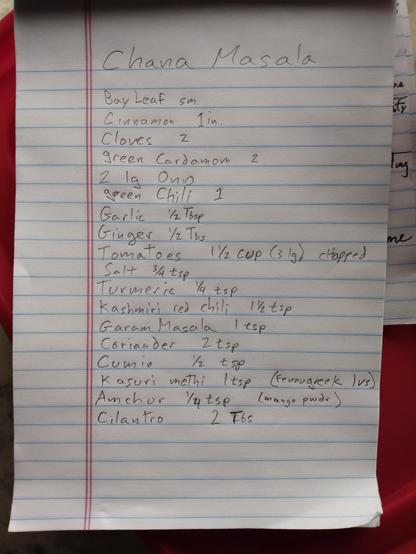 Chana Masala
Bay Leaf sm.
Cinnamon 1in.
Cloves 2
green Cardamom 2
2 lg Onio
green Chili 1
Garlic 1/2 Tbsp
Ginger 1/2 Tbs
Tomatoes 1 1/2 cup (3 lg) chopped
Salt 3/4 tsp
Turmeric 1/4 tsp
Kashmiri red chili 1 1/2 tsp
Garam Masala 1 tsp
Coriander 2 tsp
Cumin 1/2 tsp
Kasuri methi 1 tsp (fenugreek lvs)
Amchur 1/4 tsp (mango pwdr)
Cilantro 2 Tbs